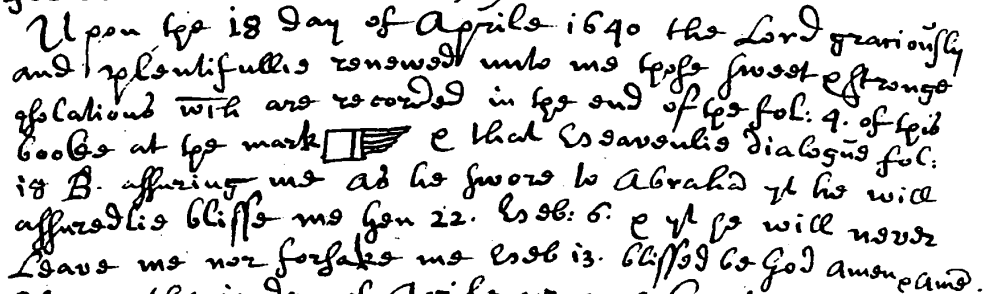 Upon the 18 day of Aprile 1640 the Lord graciously
and plentifullie renewed unto me these sweet & stronge
cõsolations wch are recorded in the end of the fol: 4. of this
booke at the mark & that Heavenlie dialogue fol:
18 B. assuring me as he swore to Abrahã yt he will
assuredlie blisse me Gen 22. Heb: 6. & yt he will never
Leave me nor forsake me Heb 13. blissed be God amen & amẽ.